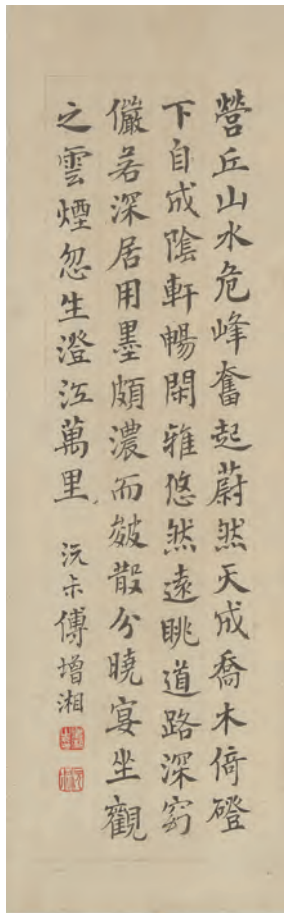 營丘山水危峰奮起蔚然天成喬木倚磴
下自成陰軒暢閑雅悠然遠眺道路深窈
儼若深居用墨頗濃而皴散分曉宴坐觀
之雲煙忽生澄江萬里
沅尗傅增湘